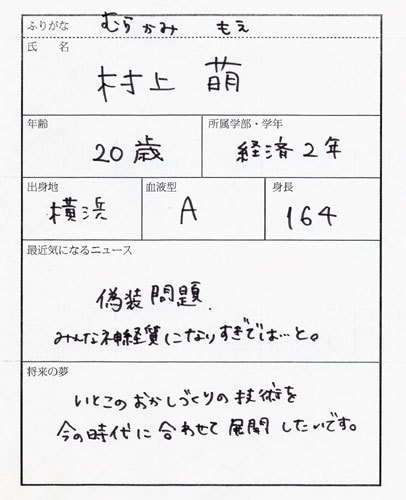 ふりがな むらかみ もえ
氏 名
村上 萌
年齢
20歳
所属学部・学年
経済2年
出身地
横浜
血液型
A
身長
164
最近気になるニュース
偽装問題.
みんな神経質になりすぎでは…と。
将来の夢
いとこのおかしづくりの技術を
今の時代に合わせて展開したいです。